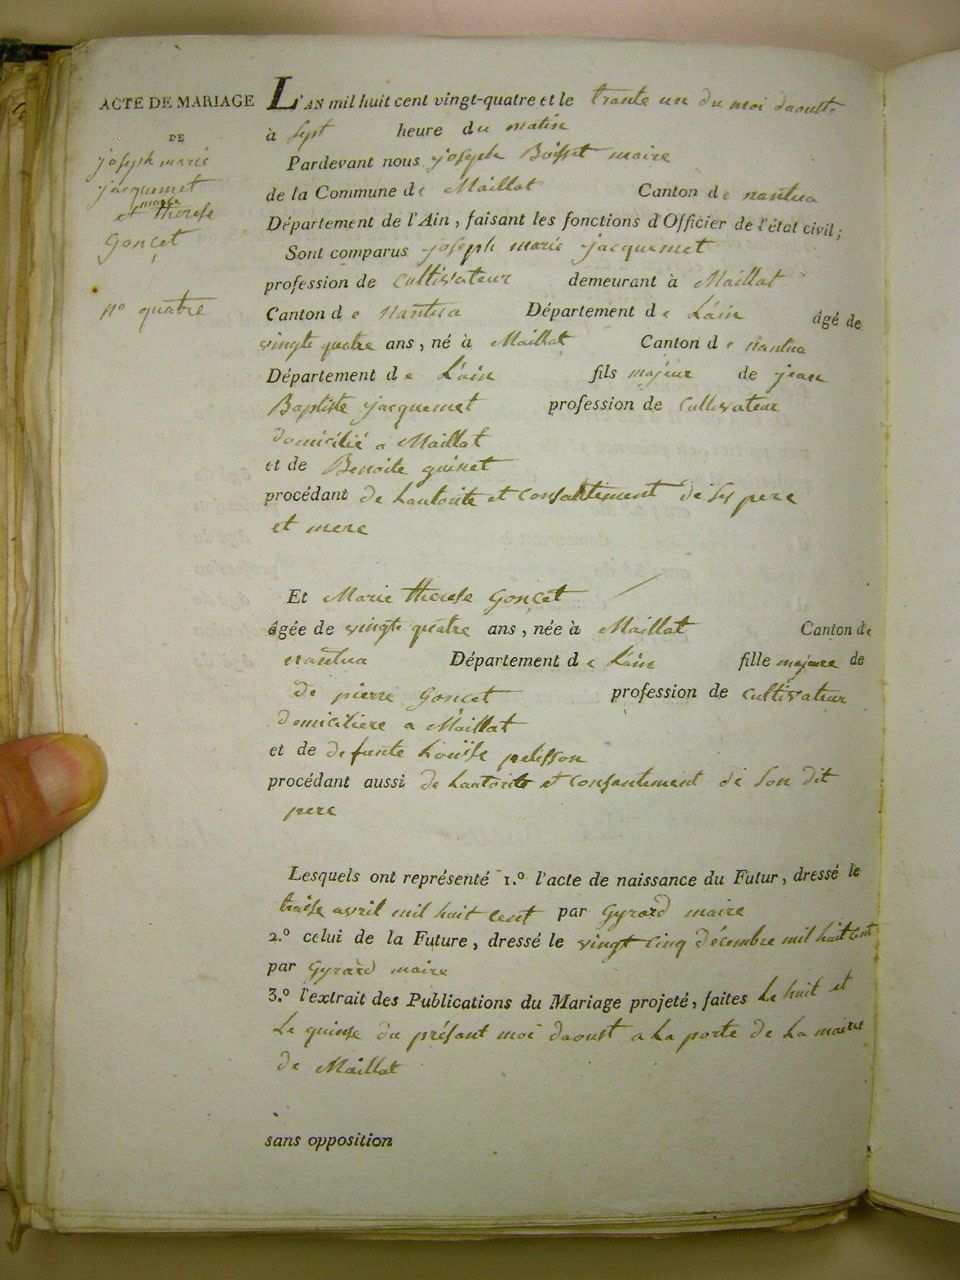 ACTE DE MARIAGE
DE
joseph marie
jacquemet
marie
et therese
Gonçet
no quatre
L'AN mil huit cent vingt-quatre et le trante un du moi daoust
à sept heure du matin
Pardevant nous joseph Boisset maire
de la Commune de Maillat Canton de nantua
Département de l'Ain, faisant les fonctions d'Officier de l'état civil;
Sont comparus joseph marie jacquemet
profession de Cultivateur demeurant à Maillat
Canton de nantua Département de L'ain âgé de
vingt quatre ans, né à Maillat Canton de nantua
Département de L'ain fils majeur de jean
Baptiste jacquemet profession de Cultivateur
domicilié a Maillat
et de Benoite guinet
procédant de Lautorite et consantement de ses pere
et mere
Et Marie therese Gonçet
âgée de vingt quatre ans, née à Maillat Canton de
nantua Département de Lain fille majeure de
de pierre Goncet profession de cultivateur
domiciliere a Maillat
et de defunte Louise pelisson
procédant aussi de Lautorite et consantement de son dit
pere
Lesquels ont représenté 1.º l'acte de naissance du Futur, dressé le
traise avril mil huit cent par Gyrard maire
2.º celui de la Future, dressé le vingt cinq décembre mil huit cent
par Gyrard maire
3.º l'extrait des Publications du Mariage projeté, faites Le huit et
Le quinse du présant moi daoust a La porte de La mairie
de Maillat
sans opposition